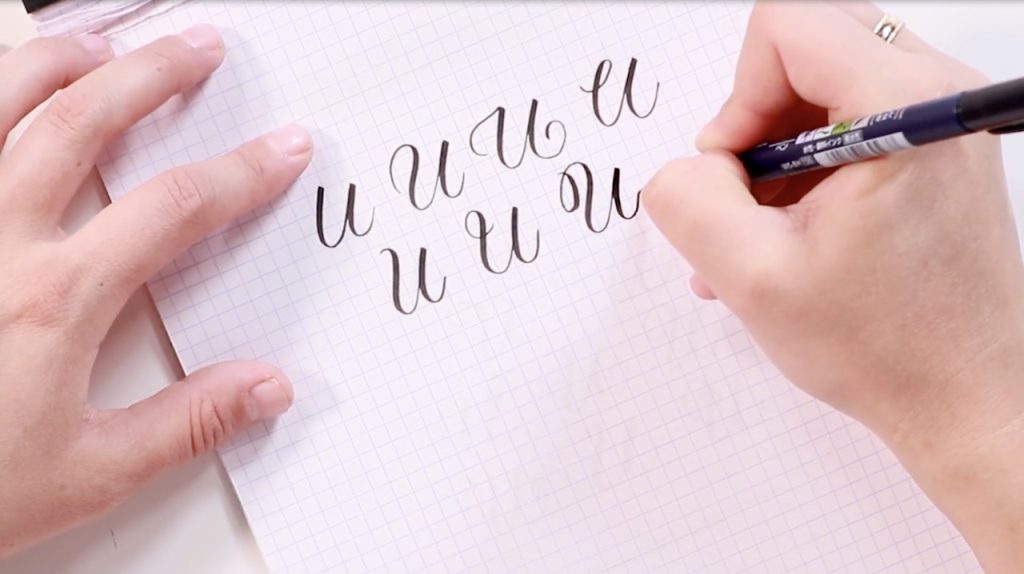 u u u u
u u u